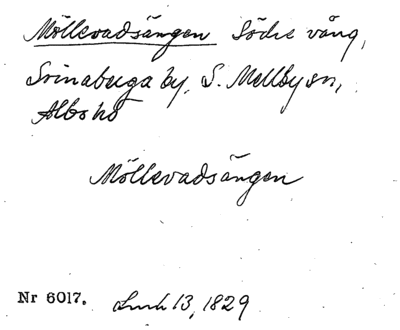 Möllevadsängen Södre vång,
Svinaberga by, S. Mellby sn,
Albo hd
Möllevadsängen
Nr 6017. 13, 1829